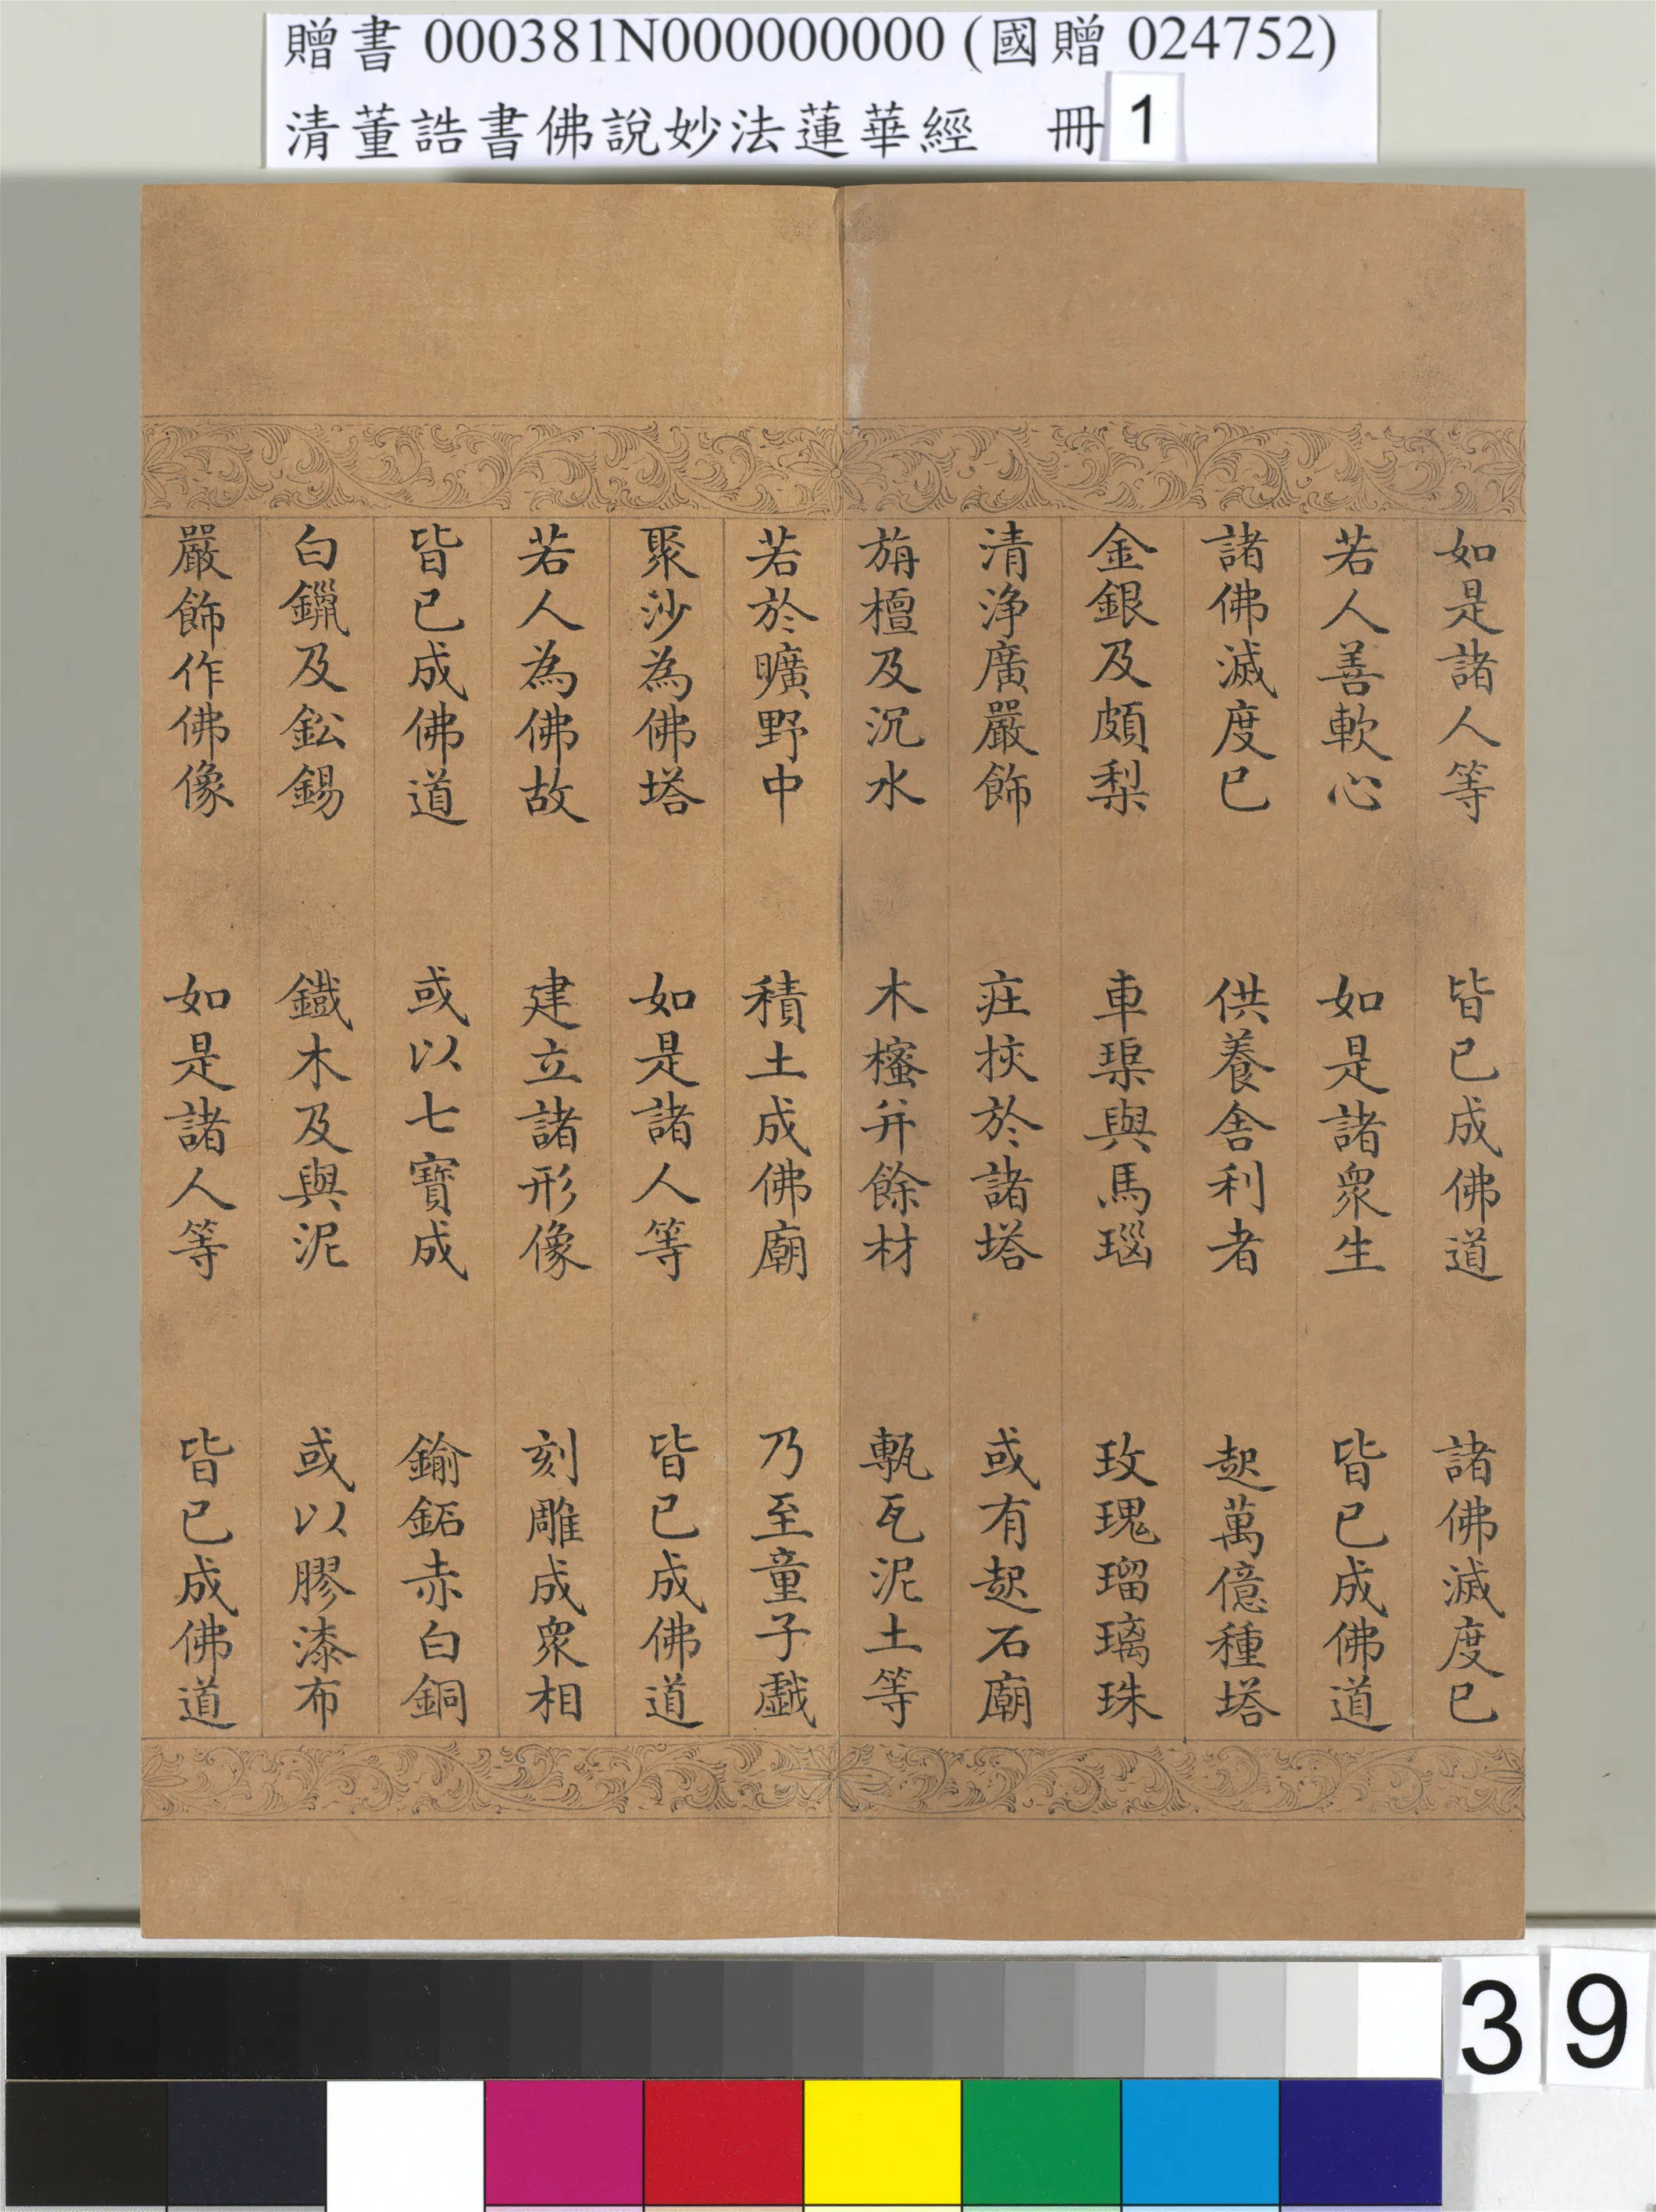 贈書 000381N000000000 (國贈 024752)
清董誥書佛說妙法蓮華經 冊 1
如是諸人等 皆已成佛道 諸佛滅度已
若人善軟心 如是諸衆生 皆已成佛道
諸佛滅度已 供養舍利者 起萬億種塔
金銀及頗梨 車璖與馬瑙 玫瑰瑠璃珠
清淨廣嚴飾 莊挍於諸塔 或有起石廟
旃檀及沉水 木櫁并餘材 甎瓦泥土等
若於曠野中 積土成佛廟 乃至童子戲
聚沙為佛塔 如是諸人等 皆已成佛道
若人為佛故 建立諸形像 刻雕成衆相
皆已成佛道 或以七寶成 鍮鉐赤白銅
白鑞及鈆錫 鐵木及與泥 或以膠漆布
嚴飾作佛像 如是諸人等 皆已成佛道
39